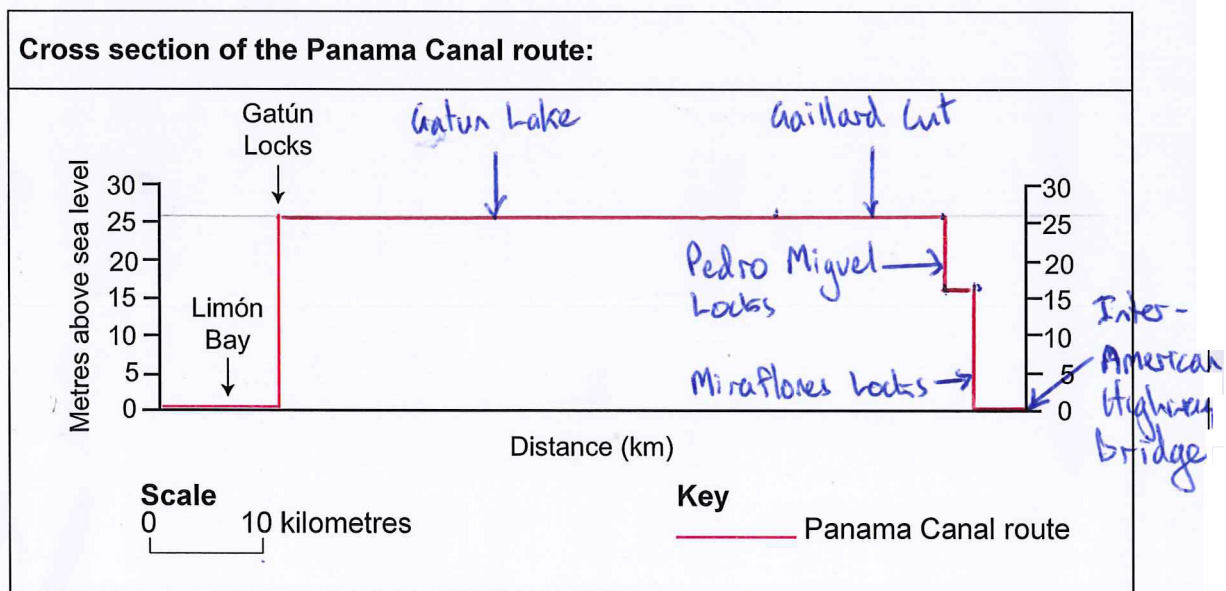 Cross section of the Panama Canal route:
Gatún
Locks
Gatun Lake
Gaillard Cut
Metres above sea level
30
25
20
15
10
5
0
Limón
Bay
Pedro Miguel
Locks
Miraflores Locks
30
25
20
15
10
5
0
Inter-
American
Highway
Bridge
Distance (km)
Scale
0 10 kilometres
Key
Panama Canal route